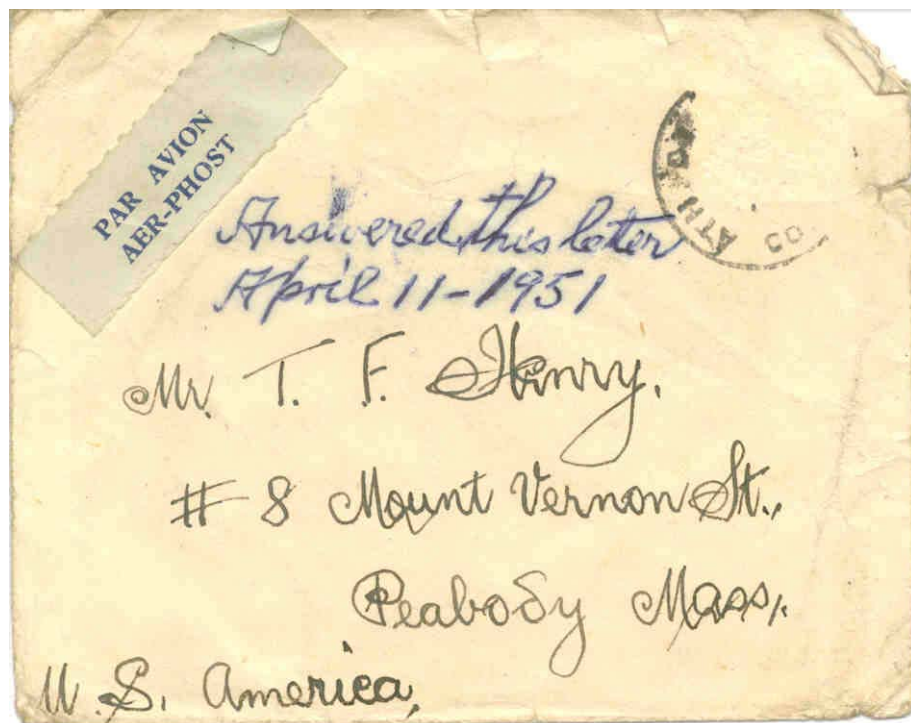 PAR AVION
AER-PHOST
Answered this letter
April 11-1951
Mr. T. F. Henry.
# 8 Mount Vernon St.,
Peabody Mass.
U. S. America,